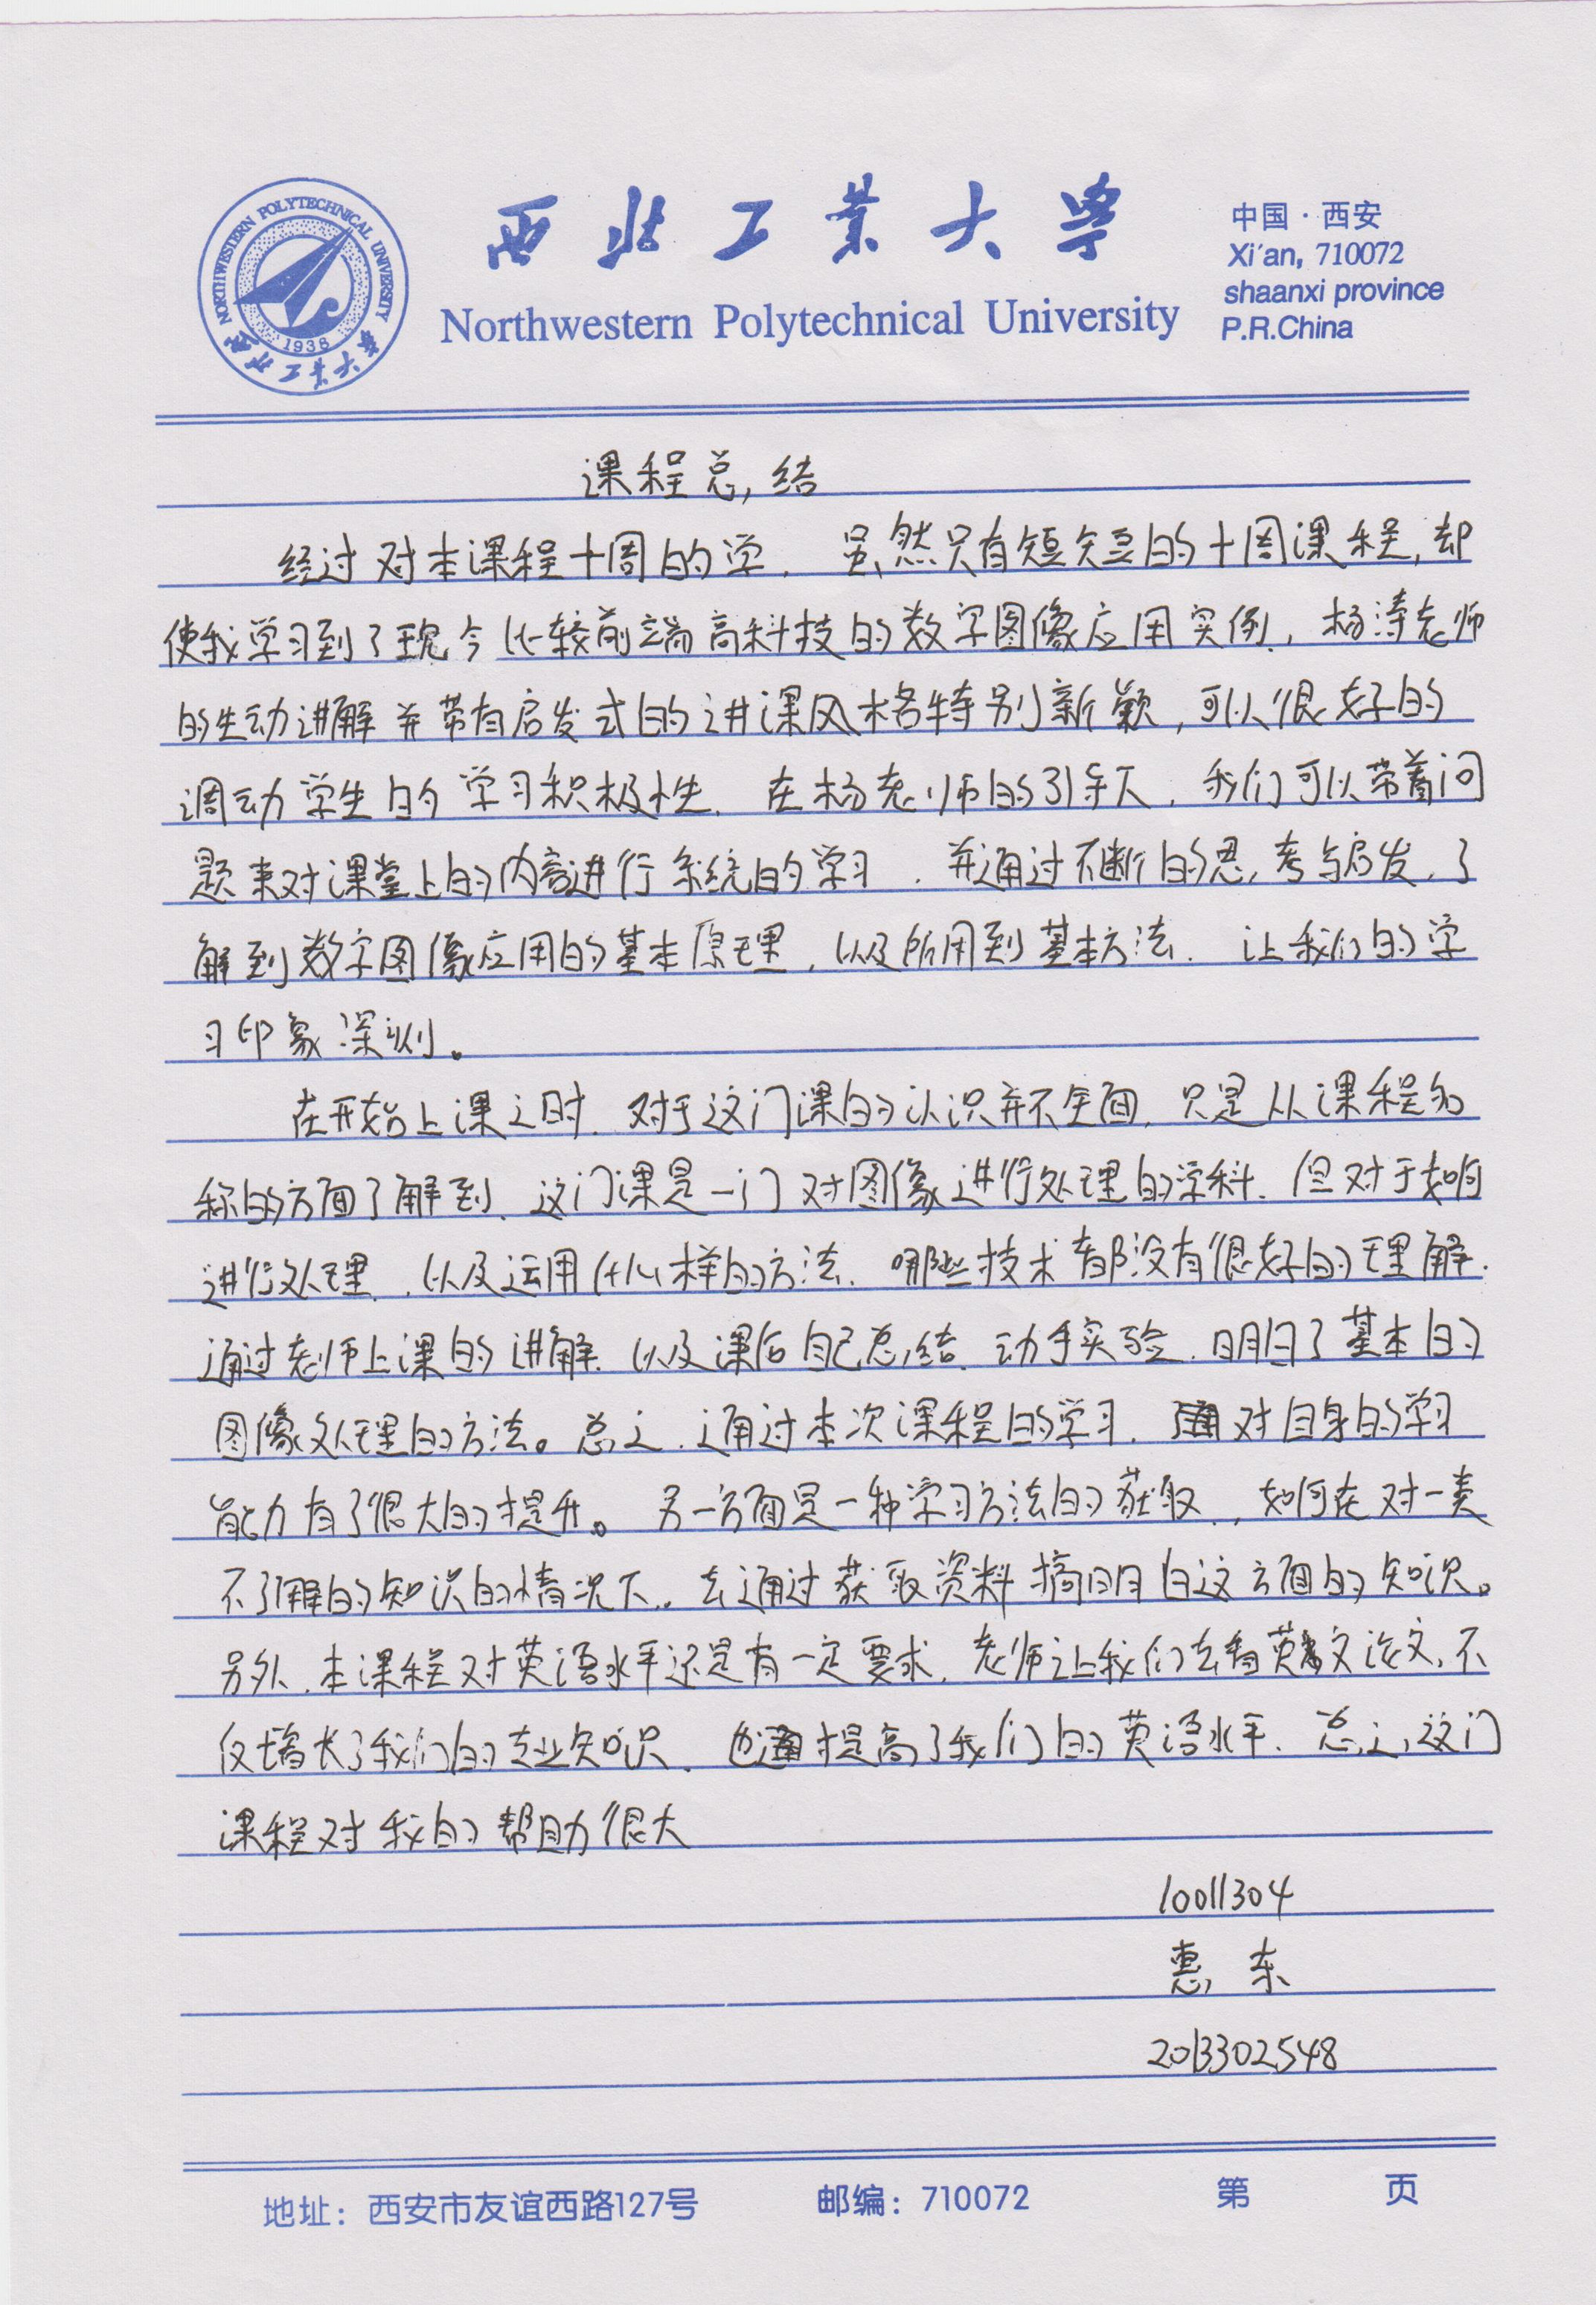 西北工业大学
Northwestern Polytechnical University
中国·西安
Xi'an, 710072
shaanxi province
P.R.China
NORTHWESTERN POLYTECHNICAL UNIVERSITY
1938
西北工业大学
课程总结
经过对本课程十周的学，虽然只有短短的十周课程，却
使我学习到了现今比较前端高科技的数字图像应用实例，杨涛老师
的生动讲解并带有启发式的讲课风格特别新颖，可以很好的
调动学生的学习积极性，在杨老师的引导下，我们可以带着问
题来对课堂上的内容进行系统的学习，并通过不断的思考与启发，了
解到数字图像应用的基本原理，以及所用到基本方法，让我们的学
习印象深刻。
在开始上课之时，对于这门课的认识并不全面，只是从课程名
称的方面了解到，这门课是一门对图像进行处理的学科，但对于如何
进行处理，以及运用什么样的方法，哪些技术都没有很好的理解．
通过老师上课的讲解，以及课后自己总结，动手实验，明白了基本的
图像处理的方法。总之，通过本次课程的学习，对自身的学习
能力有了很大的提升。另一方面是一种学习方法的获取，如何在对一类
不了解的知识的情况下，去通过获取资料搞明白这方面的知识。
另外，本课程对英语水平还是有一定要求，老师让我们去看英文论文，不
仅增长了我们的专业知识，也提高了我们的英语水平，总之，这门
课程对我的帮助很大
10011304
惠东
2013302548
地址：西安市友谊西路127号 邮编：710072 第 页